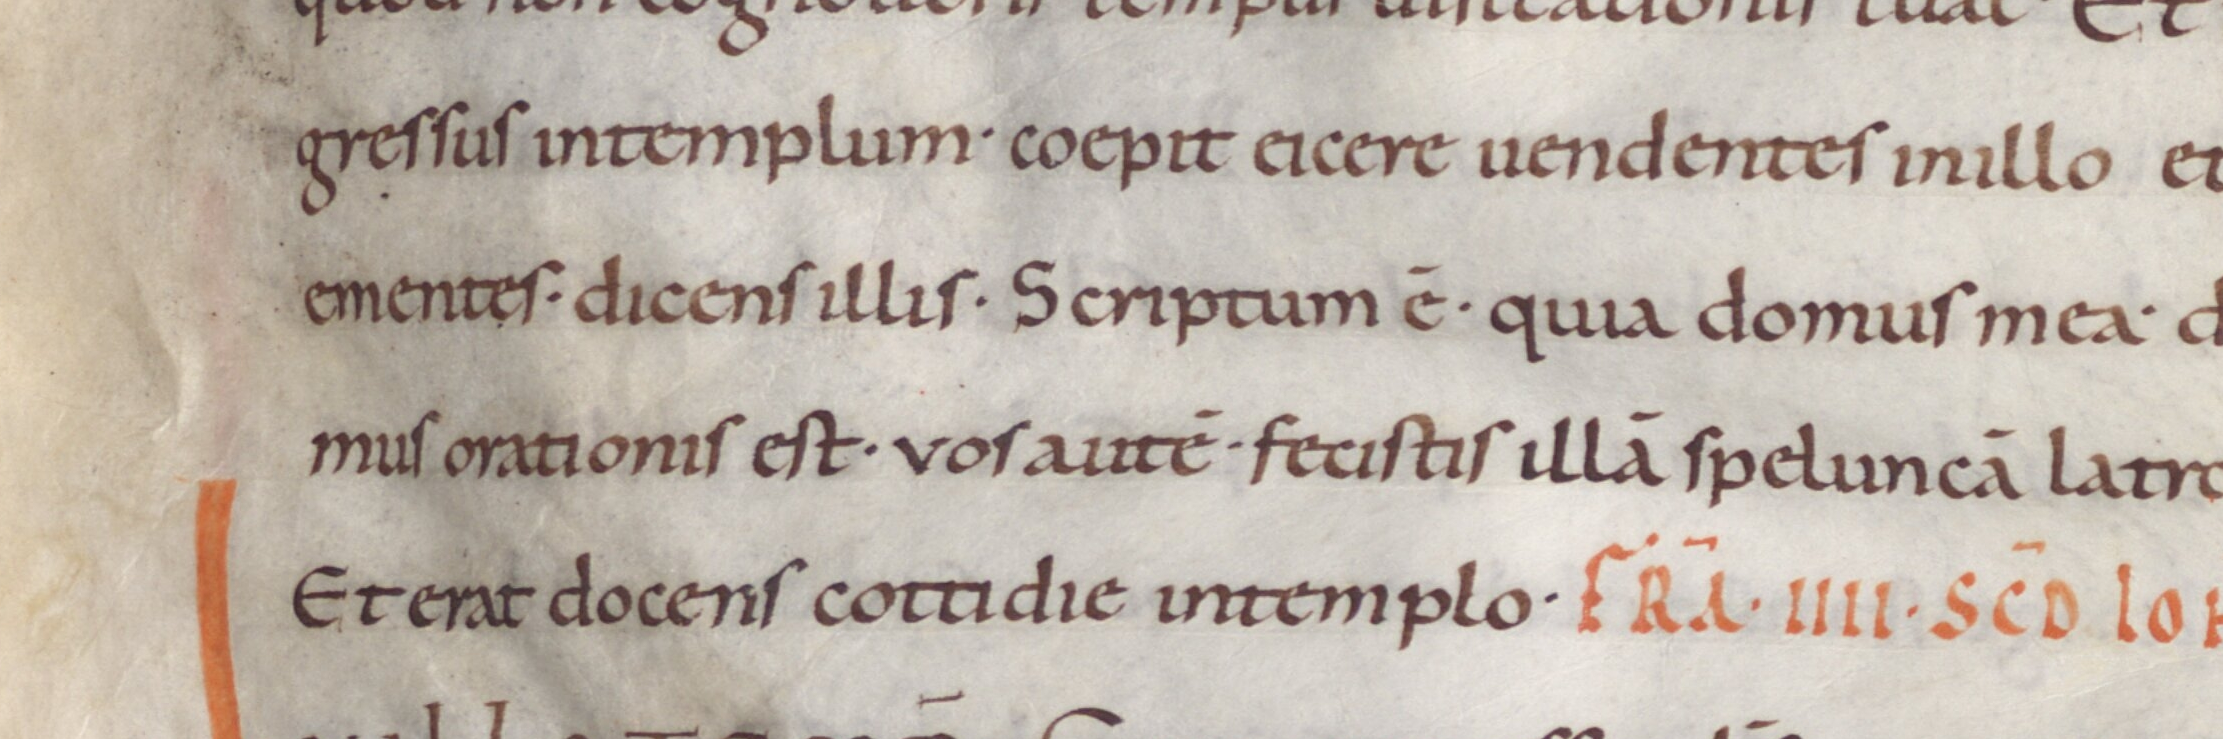 quod non cognoueris tempus uisitationis tuae · Et
gressus intemplum · coepit eicere uendentes inillo et
ementes · dicens illis · Scriptum ē · quia domus mea · d
mus orationis est · vos autē · fecistis illā speluncā latro
Et erat docens cottidie intemplo · FRĀ · IIII · SCD̄ lo